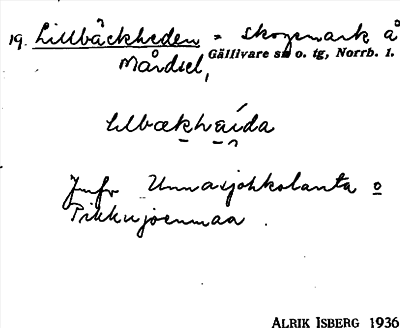 19. Lillbäckheden = skogsmark å
Mårdsel, Gällivare sn o. tg, Norrb. l.
lılbækhæída
Jmfr Unnasjohkolanta o
Pikkujoenmaa.
ALRIK ISBERG 1936